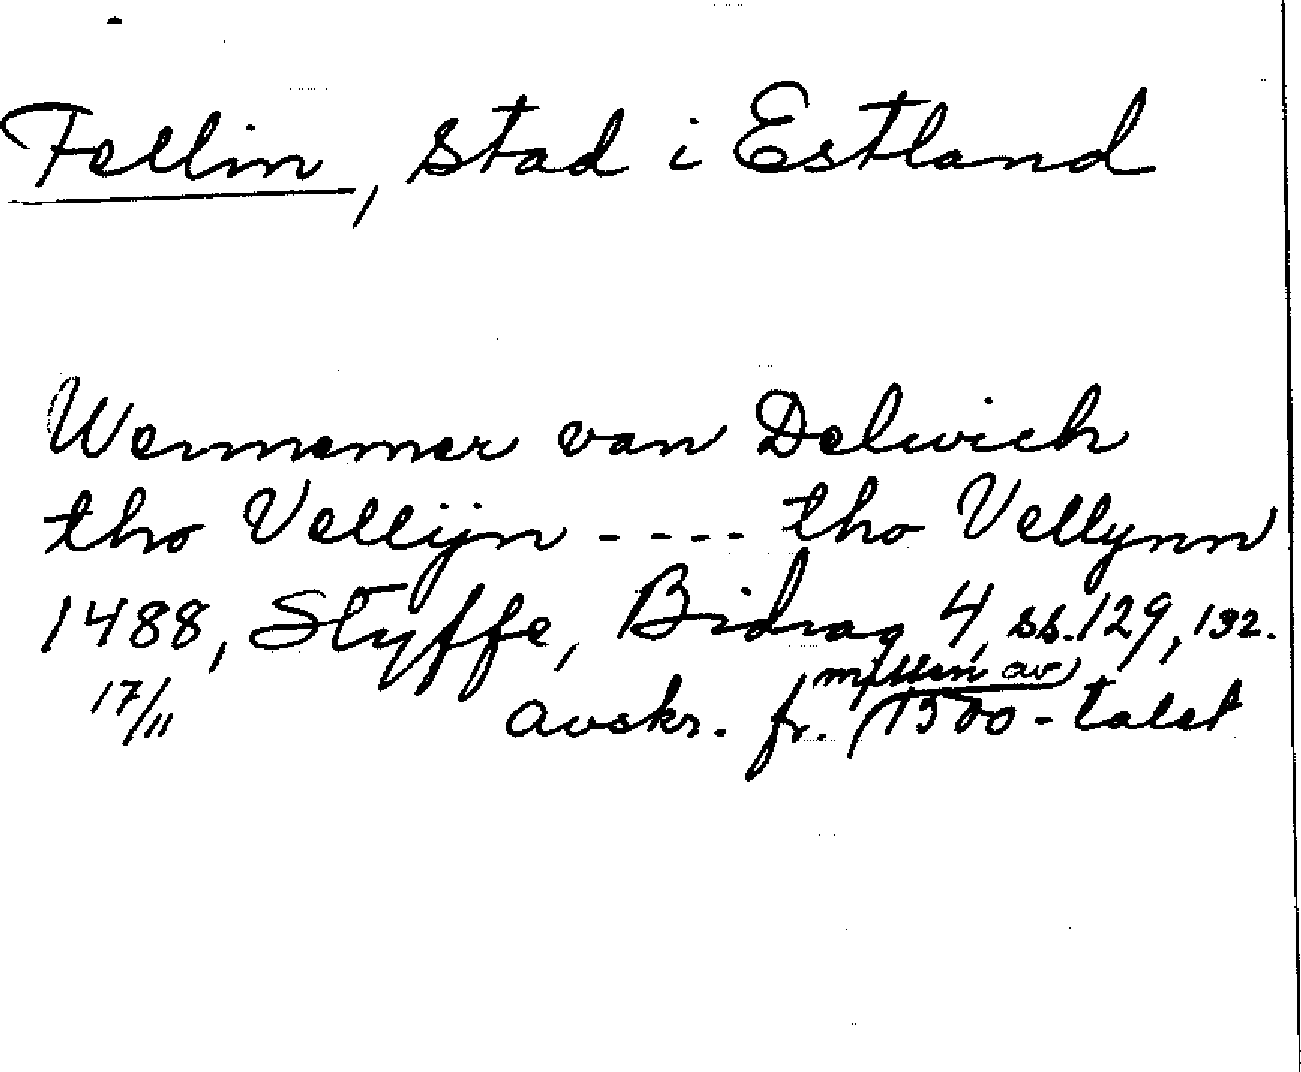 Fellin, stad i Estland
Wennemer van Delwich
tho Vellijn ---- tho Vellynn
1488, Styffe, Bidrag 4, ss. 129, 132.
17/11 avskr. fr. mitten av 1500-talet